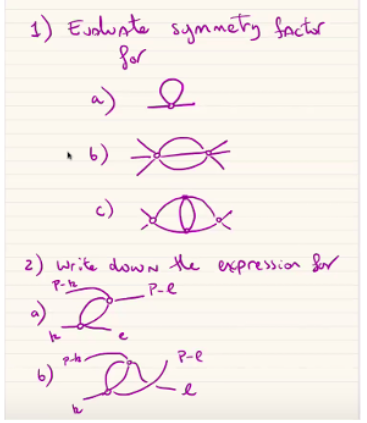 1) Evaluate symmetry factor
for
a)
b)
c)
2) write down the expression for
P-k
P-l
a)
k
l
P-k
P-l
b)
l
k